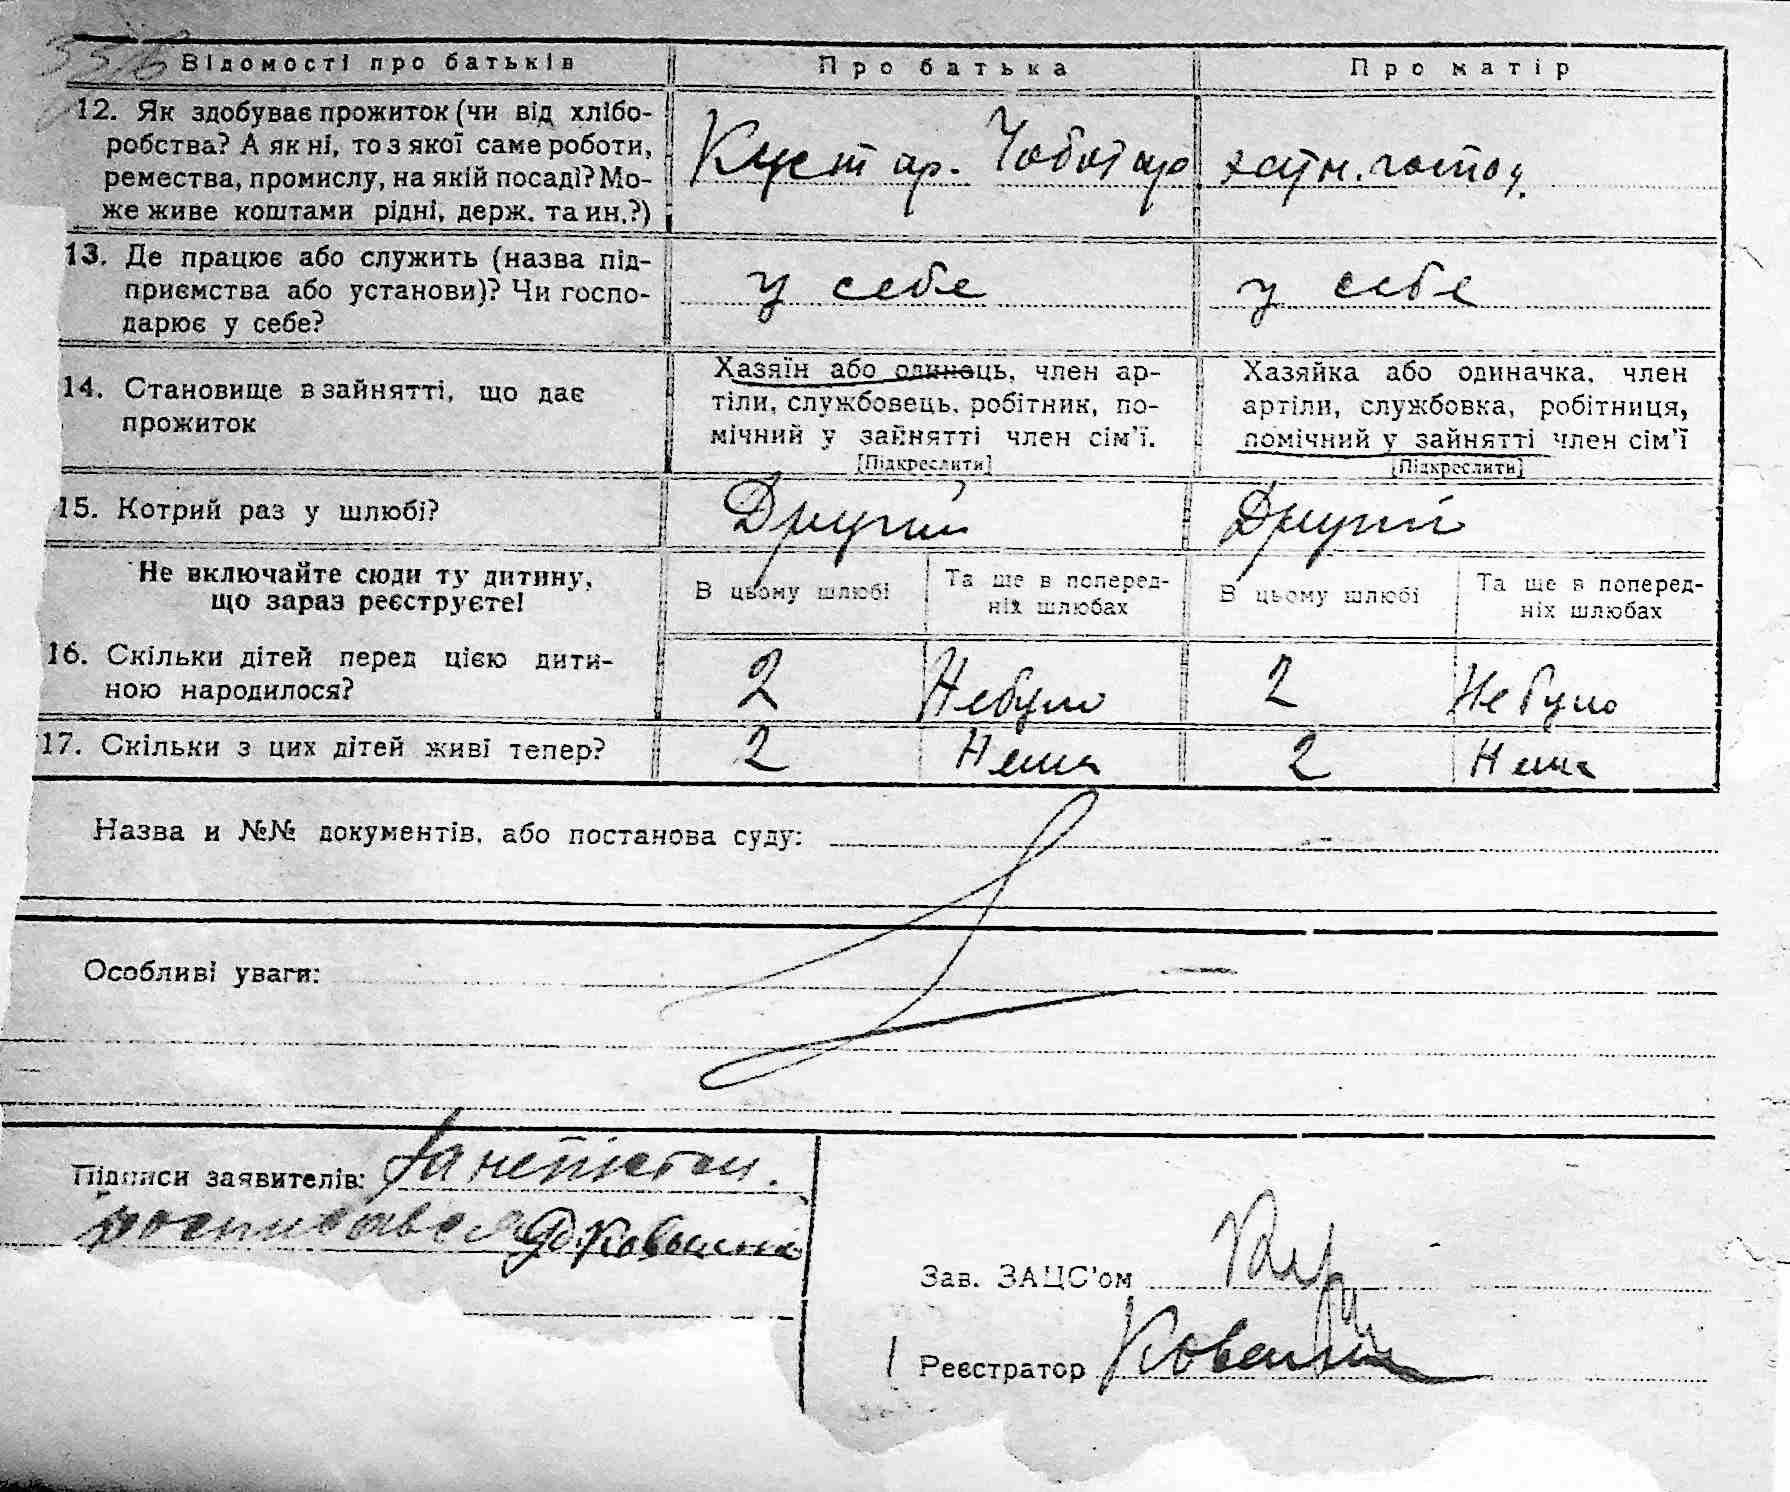 Відомості про батьків
Про батька
Про матір
12. Як здобуває прожиток (чи від хлібо-
робства? А як ні, то з якої саме роботи,
ремества, промислу, на якій посаді? Мо-
же живе коштами рідні, держ. та ин.?)
Кустар. Чоботар
хатн. господ.
13. Де працює або служить (назва під-
приємства або установи)? Чи госпо-
дарює у себе?
у себе
у себе
14. Становище в зайнятті, що дає
прожиток
Хазяїн або одинець, член ар-
тіли, службовець, робітник, по-
мічний у зайнятті член сім'ї.
[Підкреслити]
Хазяйка або одиначка, член
артіли, службовка, робітниця,
помічний у зайнятті член сім'ї
[Підкреслити]
15. Котрий раз у шлюбі?
Другий
Другий
Не включайте сюди ту дитину,
що зараз реєструєте!
В цьому шлюбі
Та ще в поперед-
ніх шлюбах
В цьому шлюбі
Та ще в поперед-
ніх шлюбах
16. Скільки дітей перед цією дити-
ною народилося?
2
Небуло
2
Небуло
17. Скільки з цих дітей живі тепер?
2
Нема
2
Нема
Назва и №№ документів, або постанова суду:
Особливі уваги:
Підписи заявителів: За неписьм.
росписався
Зав. ЗАЦС'ом
Реєстратор